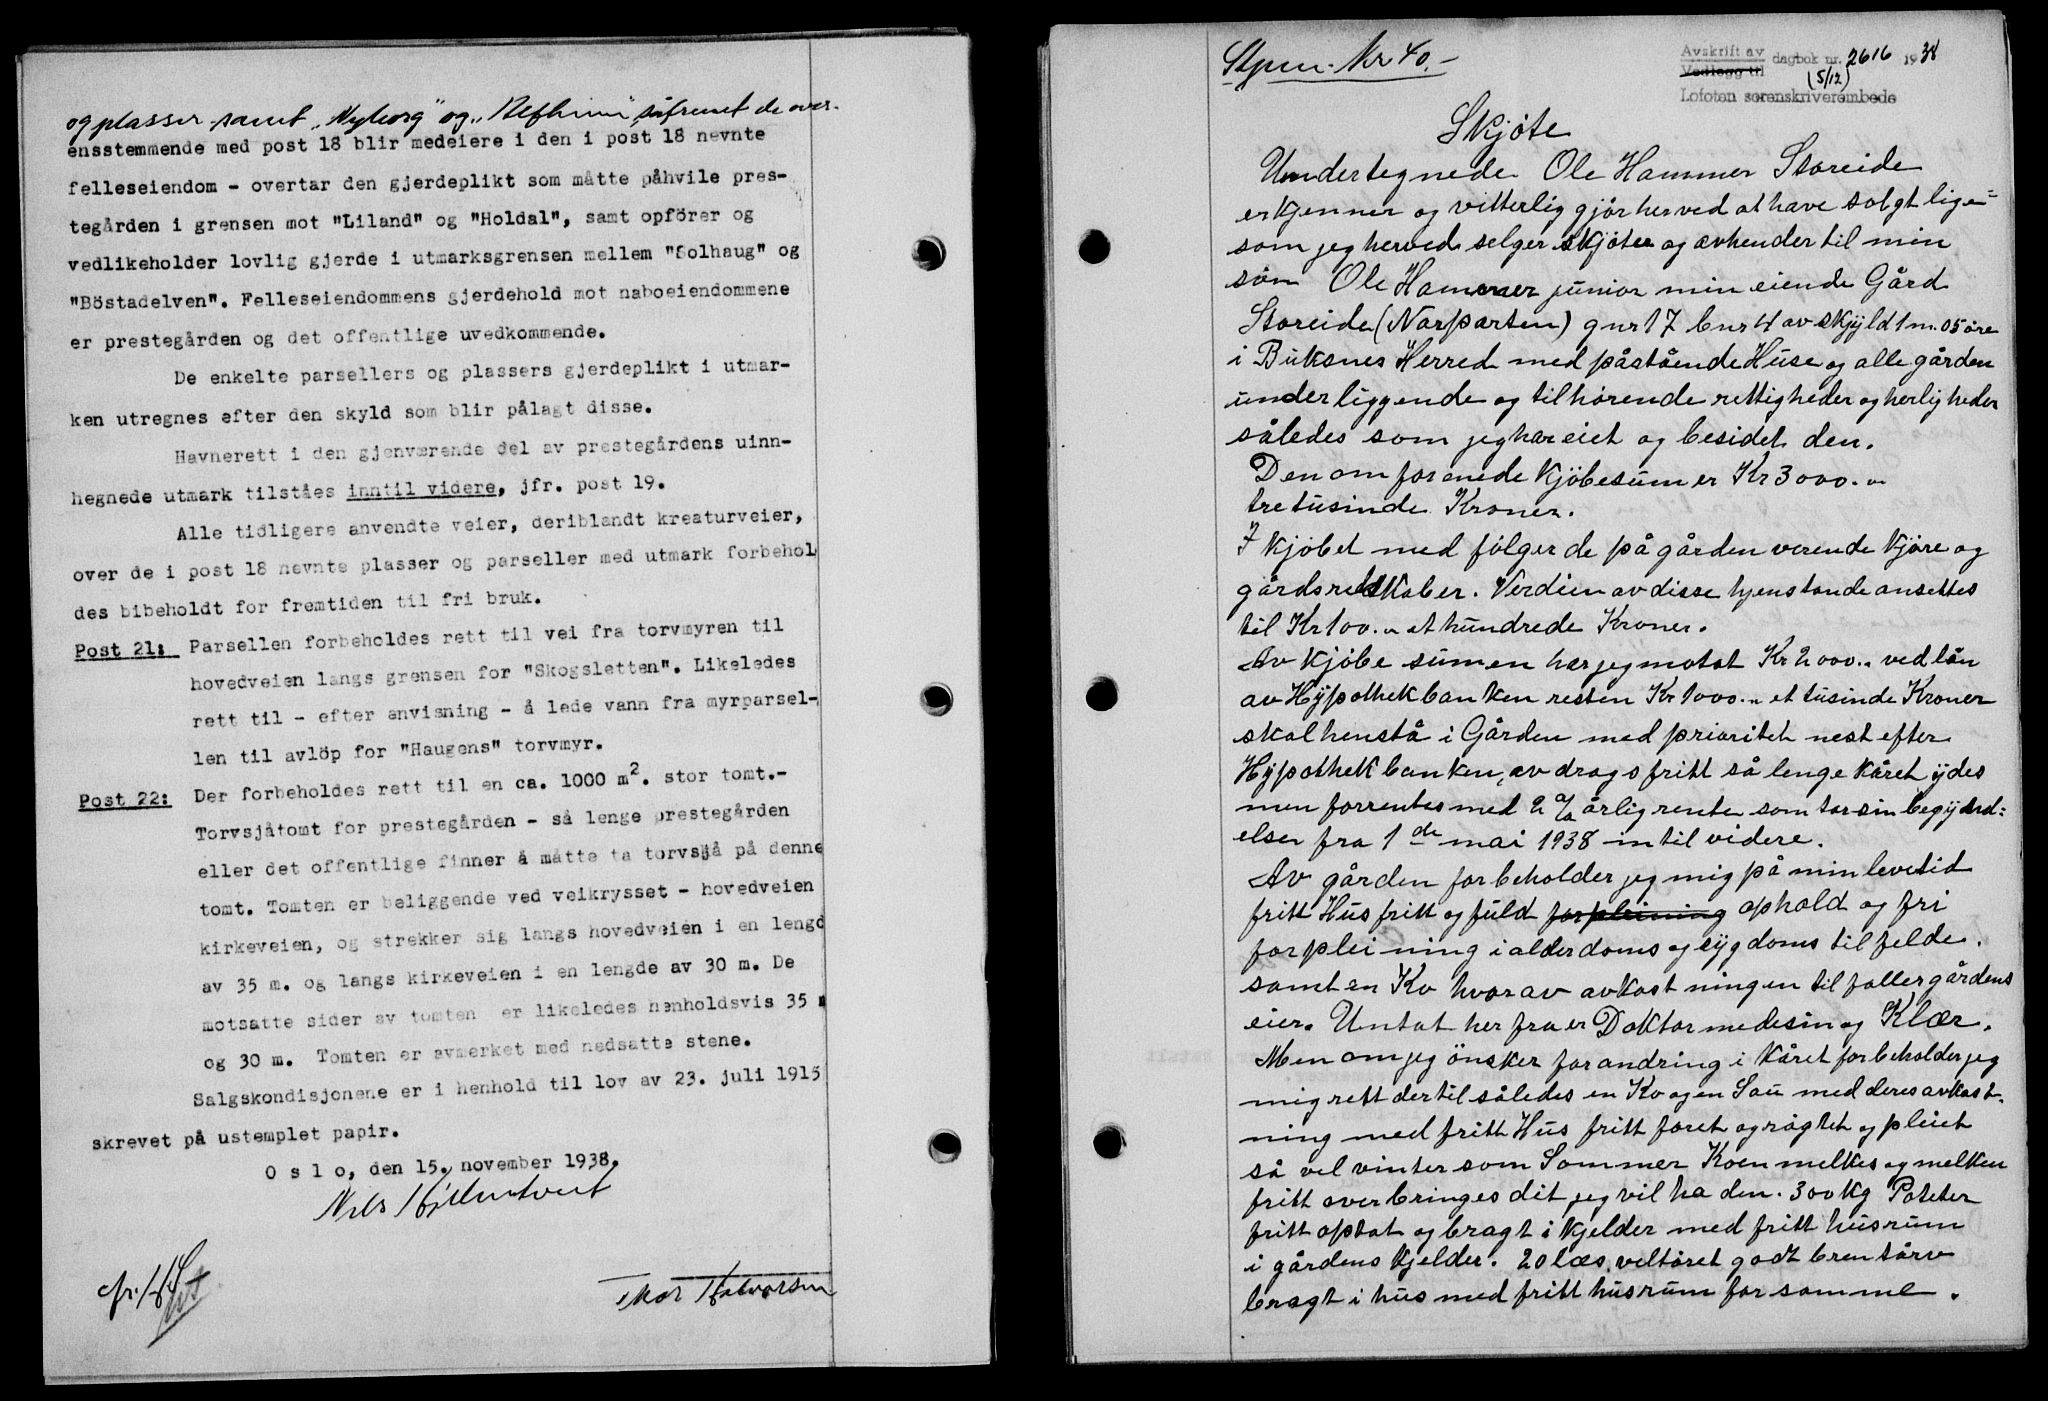 og plasser samt "Nyborg" og "Refheim", såfremt de over-
ensstemmende med post 18 blir medeiere i den i post 18 nevnte
felleseiendom - overtar den gjerdeplikt som måtte påhvile pres-
tegården i grensen mot "Liland" og "Holdal", samt opförer og
vedlikeholder lovlig gjerde i utmarksgrensen mellem "Solhaug" og
"Böstadelven". Felleseiendommens gjerdehold mot naboeiendommene
er prestegården og det offentlige uvedkommende.
De enkelte parsellers og plassers gjerdeplikt i utmar-
ken utregnes efter den skyld som blir pålagt disse.
Havnerett i den gjenværende del av prestegårdens uinn-
hegnede utmark tilståes inntil videre, jfr. post 19.
Alle tidligere anvendte veier, deriblandt kreaturveier,
over de i post 18 nevnte plasser og parseller med utmark forbehol
des bibeholdt for fremtiden til fri bruk.
Post 21: Parsellen forbeholdes rett til vei fra torvmyren til
hovedveien langs grensen for "Skogsletten". Likeledes
rett til - efter anvisning - å lede vann fra myrparsel-
len til avlöp for "Haugens" torvmyr.
Post 22: Der forbeholdes rett til en ca. 1000 m². stor tomt.-
Torvsjåtomt for prestegården - så lenge prestegården
eller det offentlige finner å måtte ta torvsjå på denne
tomt. Tomten er beliggende ved veikrysset - hovedveien
kirkeveien, og strekker sig langs hovedveien i en lengd
av 35 m. og langs kirkeveien i en lengde av 30 m. De
motsatte sider av tomten er likeledes henholdsvis 35 m
og 30 m. Tomten er avmerket med nedsatte stene.
Salgskondisjonene er i henhold til lov av 23. juli 1915
skrevet på ustemplet papir.
Oslo, den 15. november 1938.
Nils
Halvorsen
Stpm. Kr 40.-
Avskrift av
Vedlegg til dagbok nr. 2616 1938
(5/12)
Lofoten sorenskriverembede
Skjöte
Undertegnede Ole Hammer Storeide
erkjenner og vitterlig gjör herved at have solgt lige=
som jeg herved selger skjöter og avhender til min
sön Ole Hammer junior min eiende Gård
Storeide (Norparten) gnr 17 bnr 4 av skjyld 1 m. 05 öre
i Buksnes Herred med påstående Huse og alle gården
underliggende og tilhörende rettigheder og herligheder
således som jeg har eiet og besidet den.
Den omforenede Kjöbesum er Kr 3000.-
tretusinde Kroner.
I Kjöbet med fölger de på gården verende Kjöre og
gårdsredskaber. Verdien av disse hjenstande ansettes
til Kr 100.- et hundrede Kroner.
Av Kjöbe sumen har jeg motat Kr 2000.- ved lån
av Hypothekbanken resten Kr 1000.- et tusinde Kroner
skal henstå i Gården med prioritet nest efter
Hypothekbanken, avdragsfritt så lenge Kåret ydes
men forrentes med 2 % årlig rente som tar sin begynd=
elser fra 1de mai 1938 intil videre.
Av gården forbeholder jeg mig på min levetid
fritt Hus fritt og fuld forpleining ophold og fri
forpleining i alderdoms og sygdoms tilfelde.
samt en Ko hvorav avkastningen tilfaller gårdens
eier. Untat herfra er Doktor medesin og Klær.
Men om jeg önsker forandring i Kåret forbeholder jeg
mig rett dertil således en Ko og en Sau med deres avkast-
ning med fritt Hus fritt foret og rögtet og pleiet
så vel vinter som Sommer Koen melkes og melken
fritt overbringes dit jeg vil ha den. 300 Kg Poteter
fritt optat og bragt i Kjelder med fritt husrum
i gårdens Kjelder. 20 læs veltöret godt brentörv
bragt i hus med fritt husrum for samme.